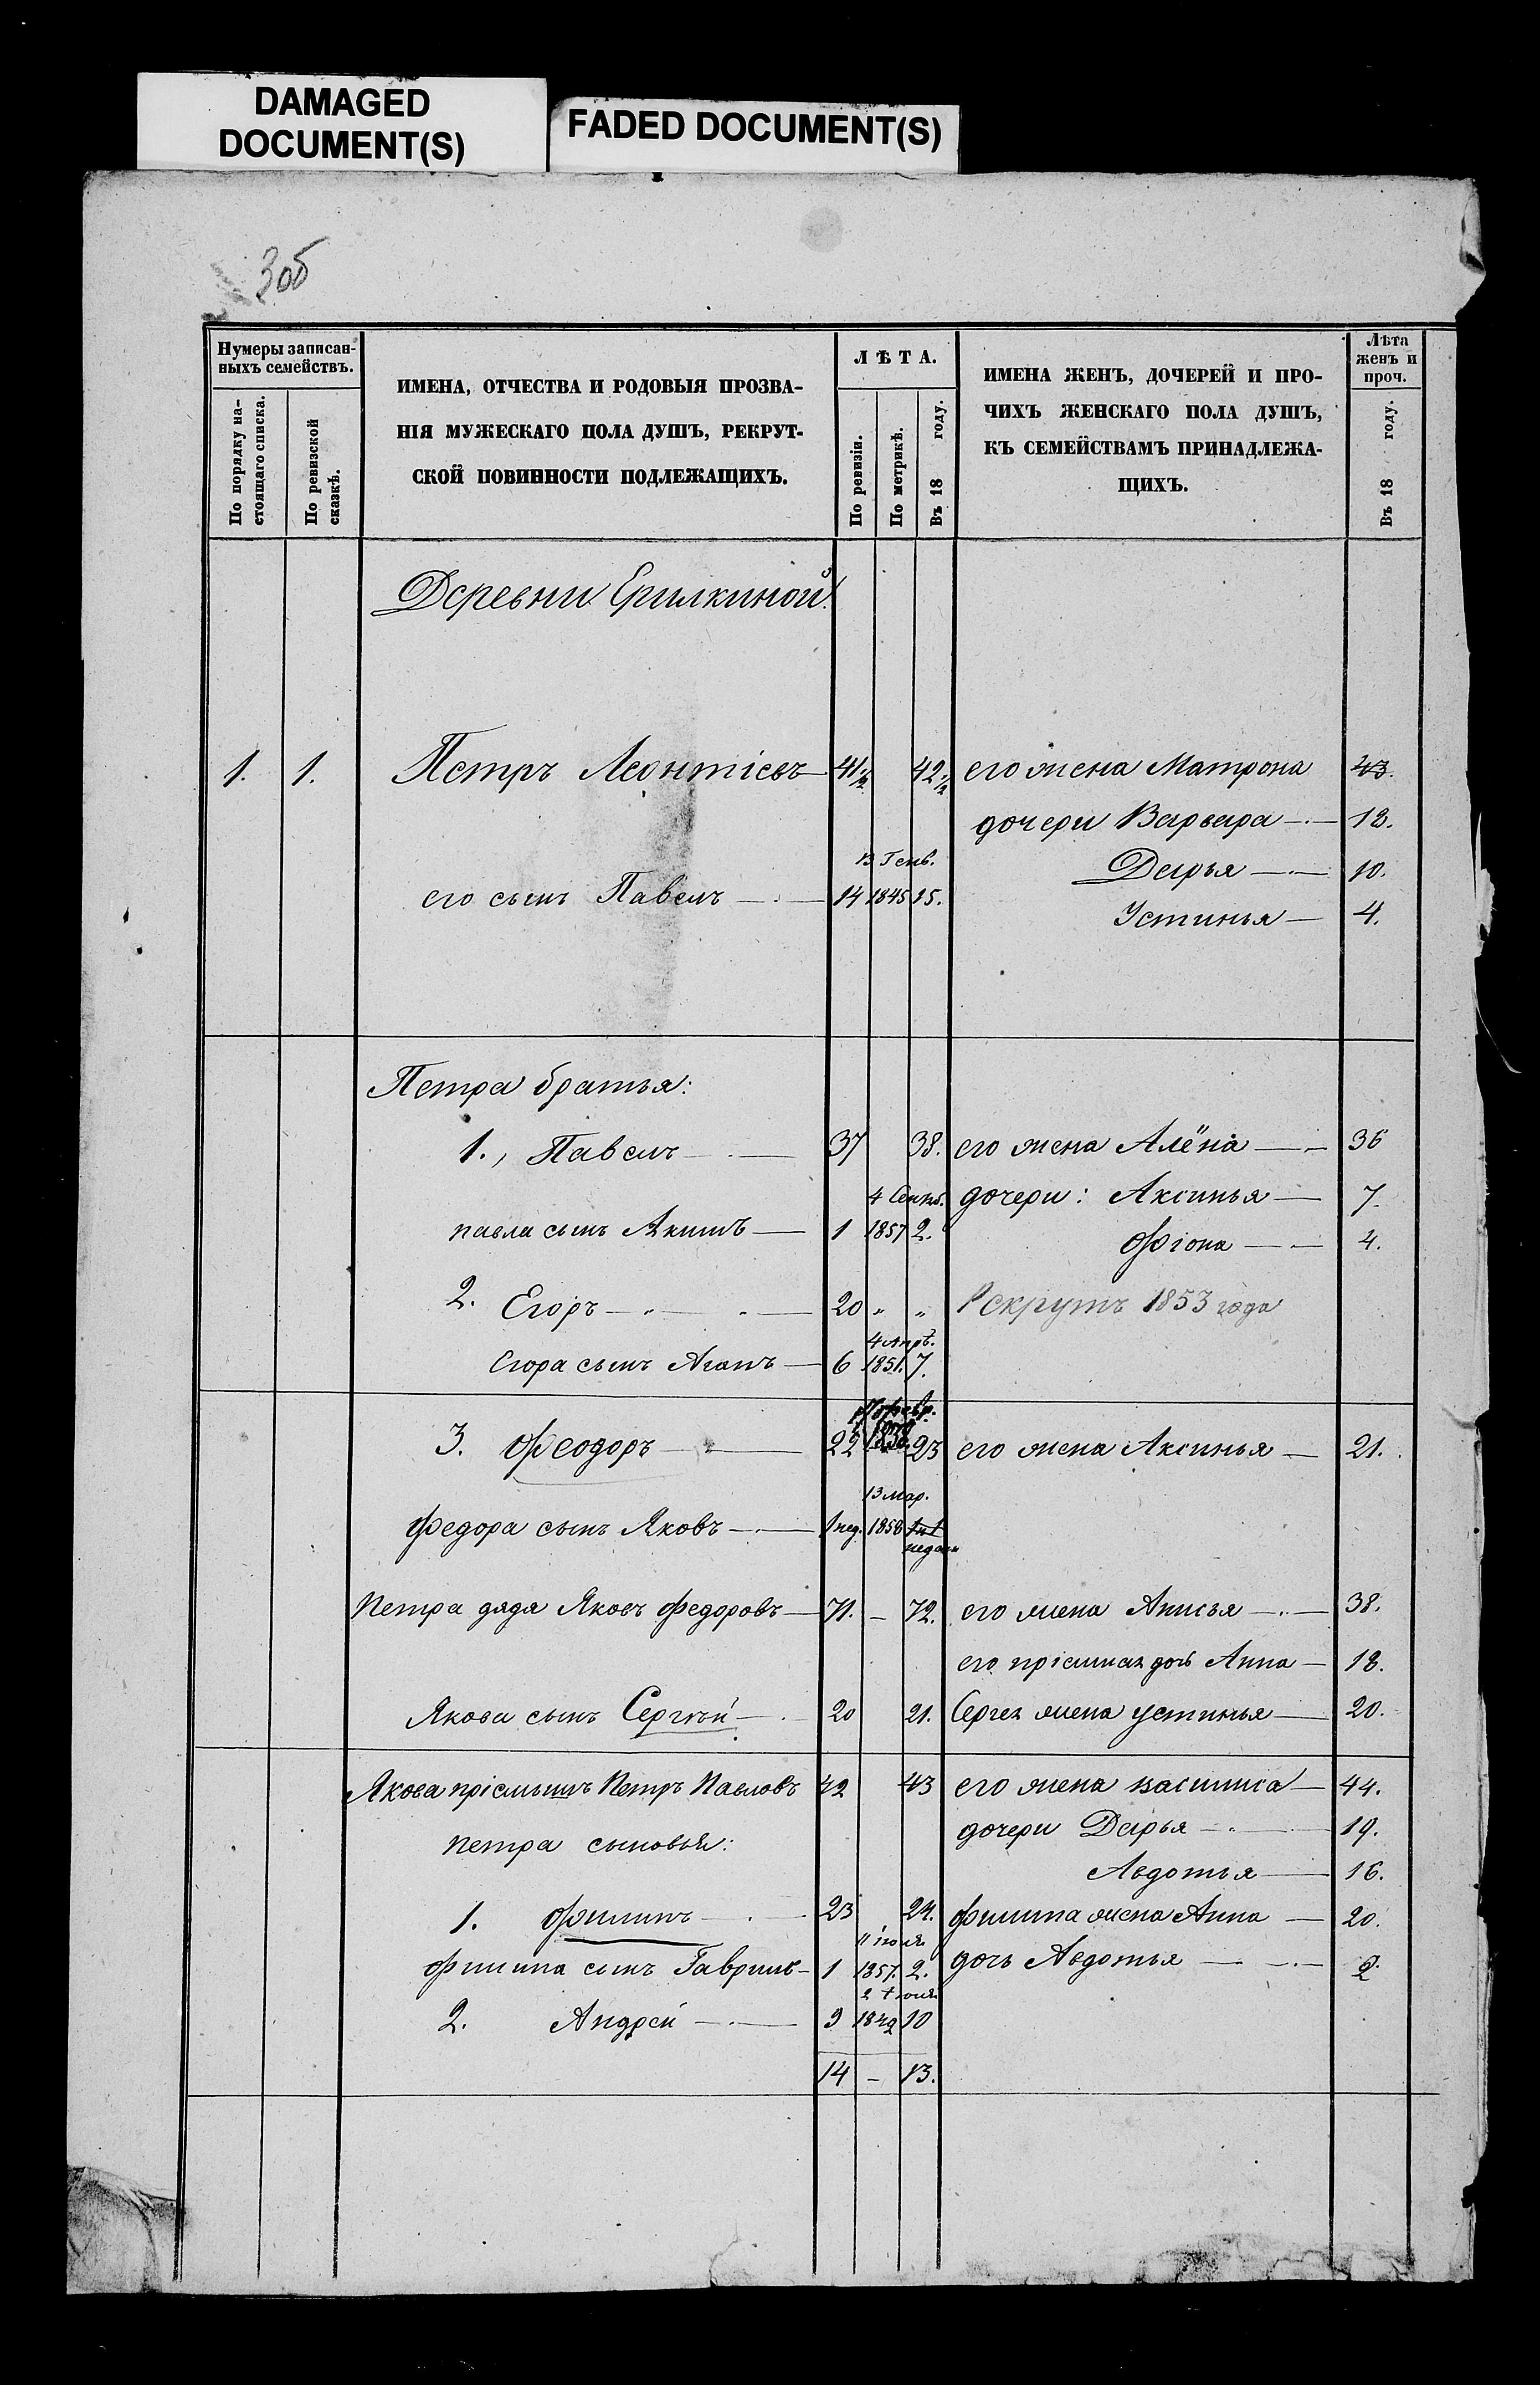 DAMAGED
DOCUMENT(S)
FADED DOCUMENT(S)
305
Нумеры записан-
ныхъ семействъ.
По порядку на-
стоящаго списка.
По ревизской
сказкѣ.
ИМЕНА, ОТЧЕСТВА И РОДОВЫЯ ПРОЗВА-
НІЯ МУЖЕСКАГО ПОЛА ДУШЪ, РЕКРУТ-
СКОЙ ПОВИННОСТИ ПОДЛЕЖАЩИХЪ.
ЛѢТА.
По ревизіи.
По метрикѣ.
Въ 18 году.
ИМЕНА ЖЕНЪ, ДОЧЕРЕЙ И ПРО-
ЧИХЪ ЖЕНСКАГО ПОЛА ДУШЪ,
КЪ СЕМЕЙСТВАМЪ ПРИНАДЛЕЖА-
ЩИХЪ.
Лѣта
женъ и
проч.
Въ 18 году.
Деревни Ерилкиной
1. 1. Петръ Леонтіевъ 41 1/2 42 1/2 его жена Матрона 43.
дочери Варвара 12.
13 Генв.
Дарья 10.
его сынъ Павелъ 14 1845 15.
Устинья 4.
Петра братья:
1., Павелъ 37 38. его жена Алёна 36
4 Сентб. дочери: Аксинья 7.
павла сынъ Акимъ 1 1857 2.
Фіона 4.
2. Егоръ 20 " " Рекрутъ 1853 года
4 Апрѣ.
Егора сынъ Агапъ 6 1851. 7.
Февр.
3. Феодоръ 22 23 его жена Аксинья 21.
13 мар.
Федора сынъ Яковъ 1 нед. 1858
недели
Петра дядя Яковъ Федоровъ 71. – 72. его жена Анисья 38.
его пріемная дочь Анна 18.
Якова сынъ Сергѣй 20 21. Сергея жена устинья 20.
Якова пріемышъ Петръ Павловъ 42 43 его жена василиса 44.
дочери Дарья 19.
петра сыновья:
Авдотья 16.
1. Филипъ 23 24. Филипа жена Анна 20.
11 іюля
дочь Авдотья 2.
Филипа сынъ Гаврило 1 1857. 2.
2. Андрей 9 1849 10
14 – 13.